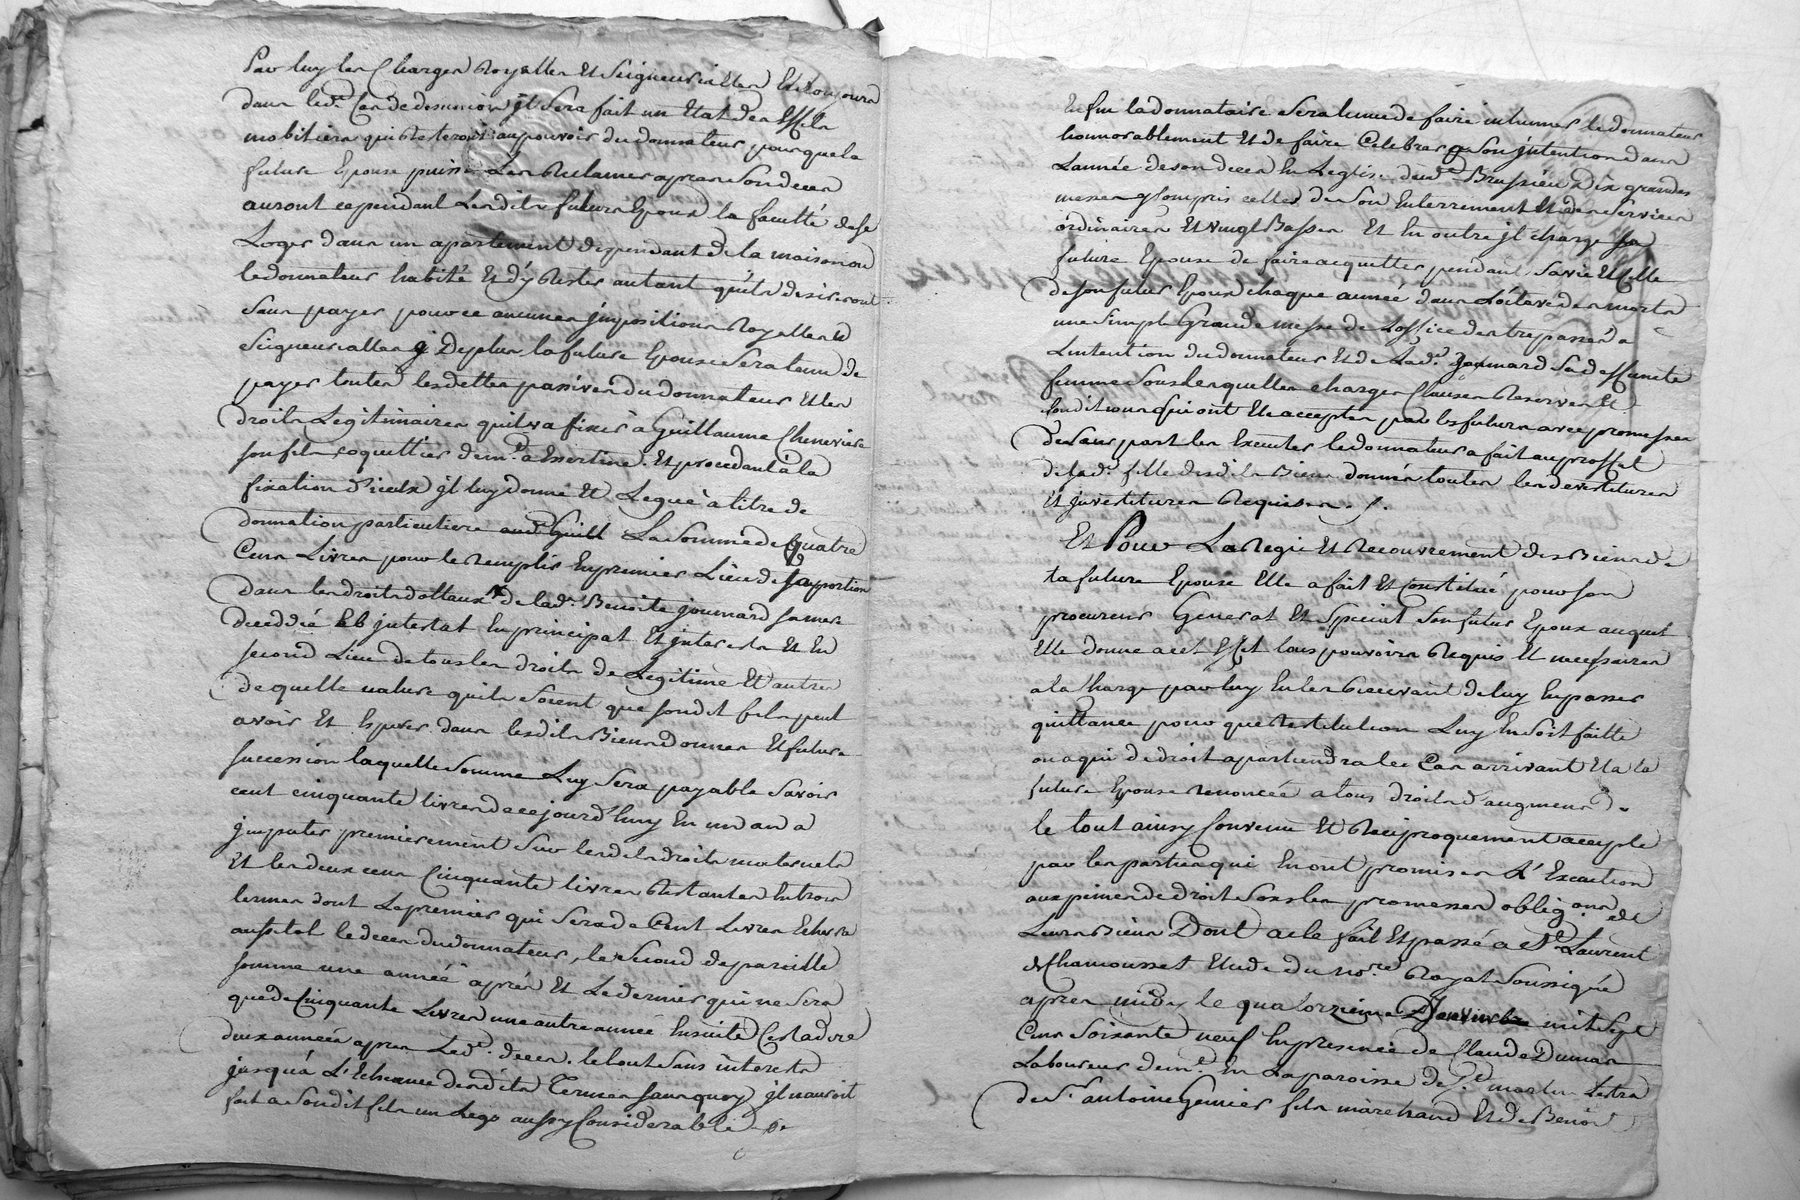 Par luy les Charges Royalles Et Seigneurialles Et toujours
dans led. Cas de desunion jl sera fait un Etat des Effets
mobiliers qui resteront au pouvoir du donnateur pour que la
future Epouse puisse Les Reclamer apres son deces
auront cependant Lesdits futurs Epoux la faculté de se
Loger dans un apartement dependant de la maison ou
le donnateur habite Et d'y Rester autant qu'ils desireront
sans payer pour ce aucunes jmpositions Royalles Et
Seigneurialles De plus la future Epouse sera tenue de
payer toutes les dettes passives du donnateur Et les
droits Legitimaires qu'il va fixer à Guillaume Cheneviere
son fils coquettier dem.t a Essertine. Et procedant à la
fixation d'iceux jl luy donne Et Legue à titre de
donnation particuliere La somme de Quatre
Cens Livres pour le remplir En premier Lieu de sa portion
dans les droits dottaux de lad. Benoite jouunard sa mere
deceddée ab jntestat En principal Et jnterets Et En
second Lieu de tous les droits de Legitime Et autres
de quelle nature qu'ils soient que sondit fils peut
avoir Et Esperer dans lesdits Biens donnés Et future
succession laquelle somme Luy sera payable Savoir
cent cinquante livres de ce jourd'huy En un an a
jmputer premierement sur lesdits droits maternels
Et les deux cens Cinquante livres Restantes En trois
termes dont Le premier qui sera de Cent Livres Echerra
aussitot le deces du donnateur, le second de pareille
somme une année après Et Le dernier qui ne sera
que de Cinquante Livres une autre année Ensuite C'est a dire
deux années apres Led. deces. le tout sans interets
jusqu'à L'Echeance desdits Termes sans quoy jl n'auroit
fait a sondit fils un Legs aussy Considerable
Enfin la donnataire sera tenue de faire inhumer le donnateur
honnorablement Et de faire Celebrer a son jntention dans
L'année de son deces En L'eglise dud. Brussieu Dix grandes
messes y Compris celles de son Enterrement Et des services
ordinaires Et vingt Basses Et En outre jl charge sa
future Epouse de faire acquitter pendant sa vie Et Celle
de son futur Epoux chaque année dans L'octave des morts
une simple Grande messe de L'office des trepassés a
L'intention du donnateur Et de Lad. jouunard sa deffunte
femme Sous Lesquelles charges Clauses Reserves Et
Conditions qui ont Eté acceptés par les futurs avec promesses
de Leur part les Executer le donnateur a fait au proffit
de sad. fille desdits Biens donnés toutes les devestitures
Et jnvestitures Requises ./.
Et Pour La Regie Et Recouvrement des Biens de
la future Epouse Elle a fait Et Constitué pour son
procureur General Et Special son futur Epoux auquel
Elle donne a cet Effet tous pouvoirs Requis Et necessaires
a la Charge par luy En les Recevant de luy En passer
quittance pour que restitution Luy En soit faitte
ou a qui de droit apartiendra le Cas arrivant Et a la
future Epouse renoncée a tous droits d'augment
le tout ainsy Convenu Et Reciproquement accepté
par les parties qui En ont promis L'Execution
aux peines de droit sous les promesses oblig.ons de
Leurs Biens Dont acte fait Et passé a S.t Laurent
de Chamousset Etude du no.re Royal soussigné
apres midy le quatorzieme mil Sept
Cens Soixante neuf En presence de Claude Dumas
Laboureur dem.t En La paroisse de S.t martin Lestra
de S.r antoine Genier fils marchand Et de Benoi